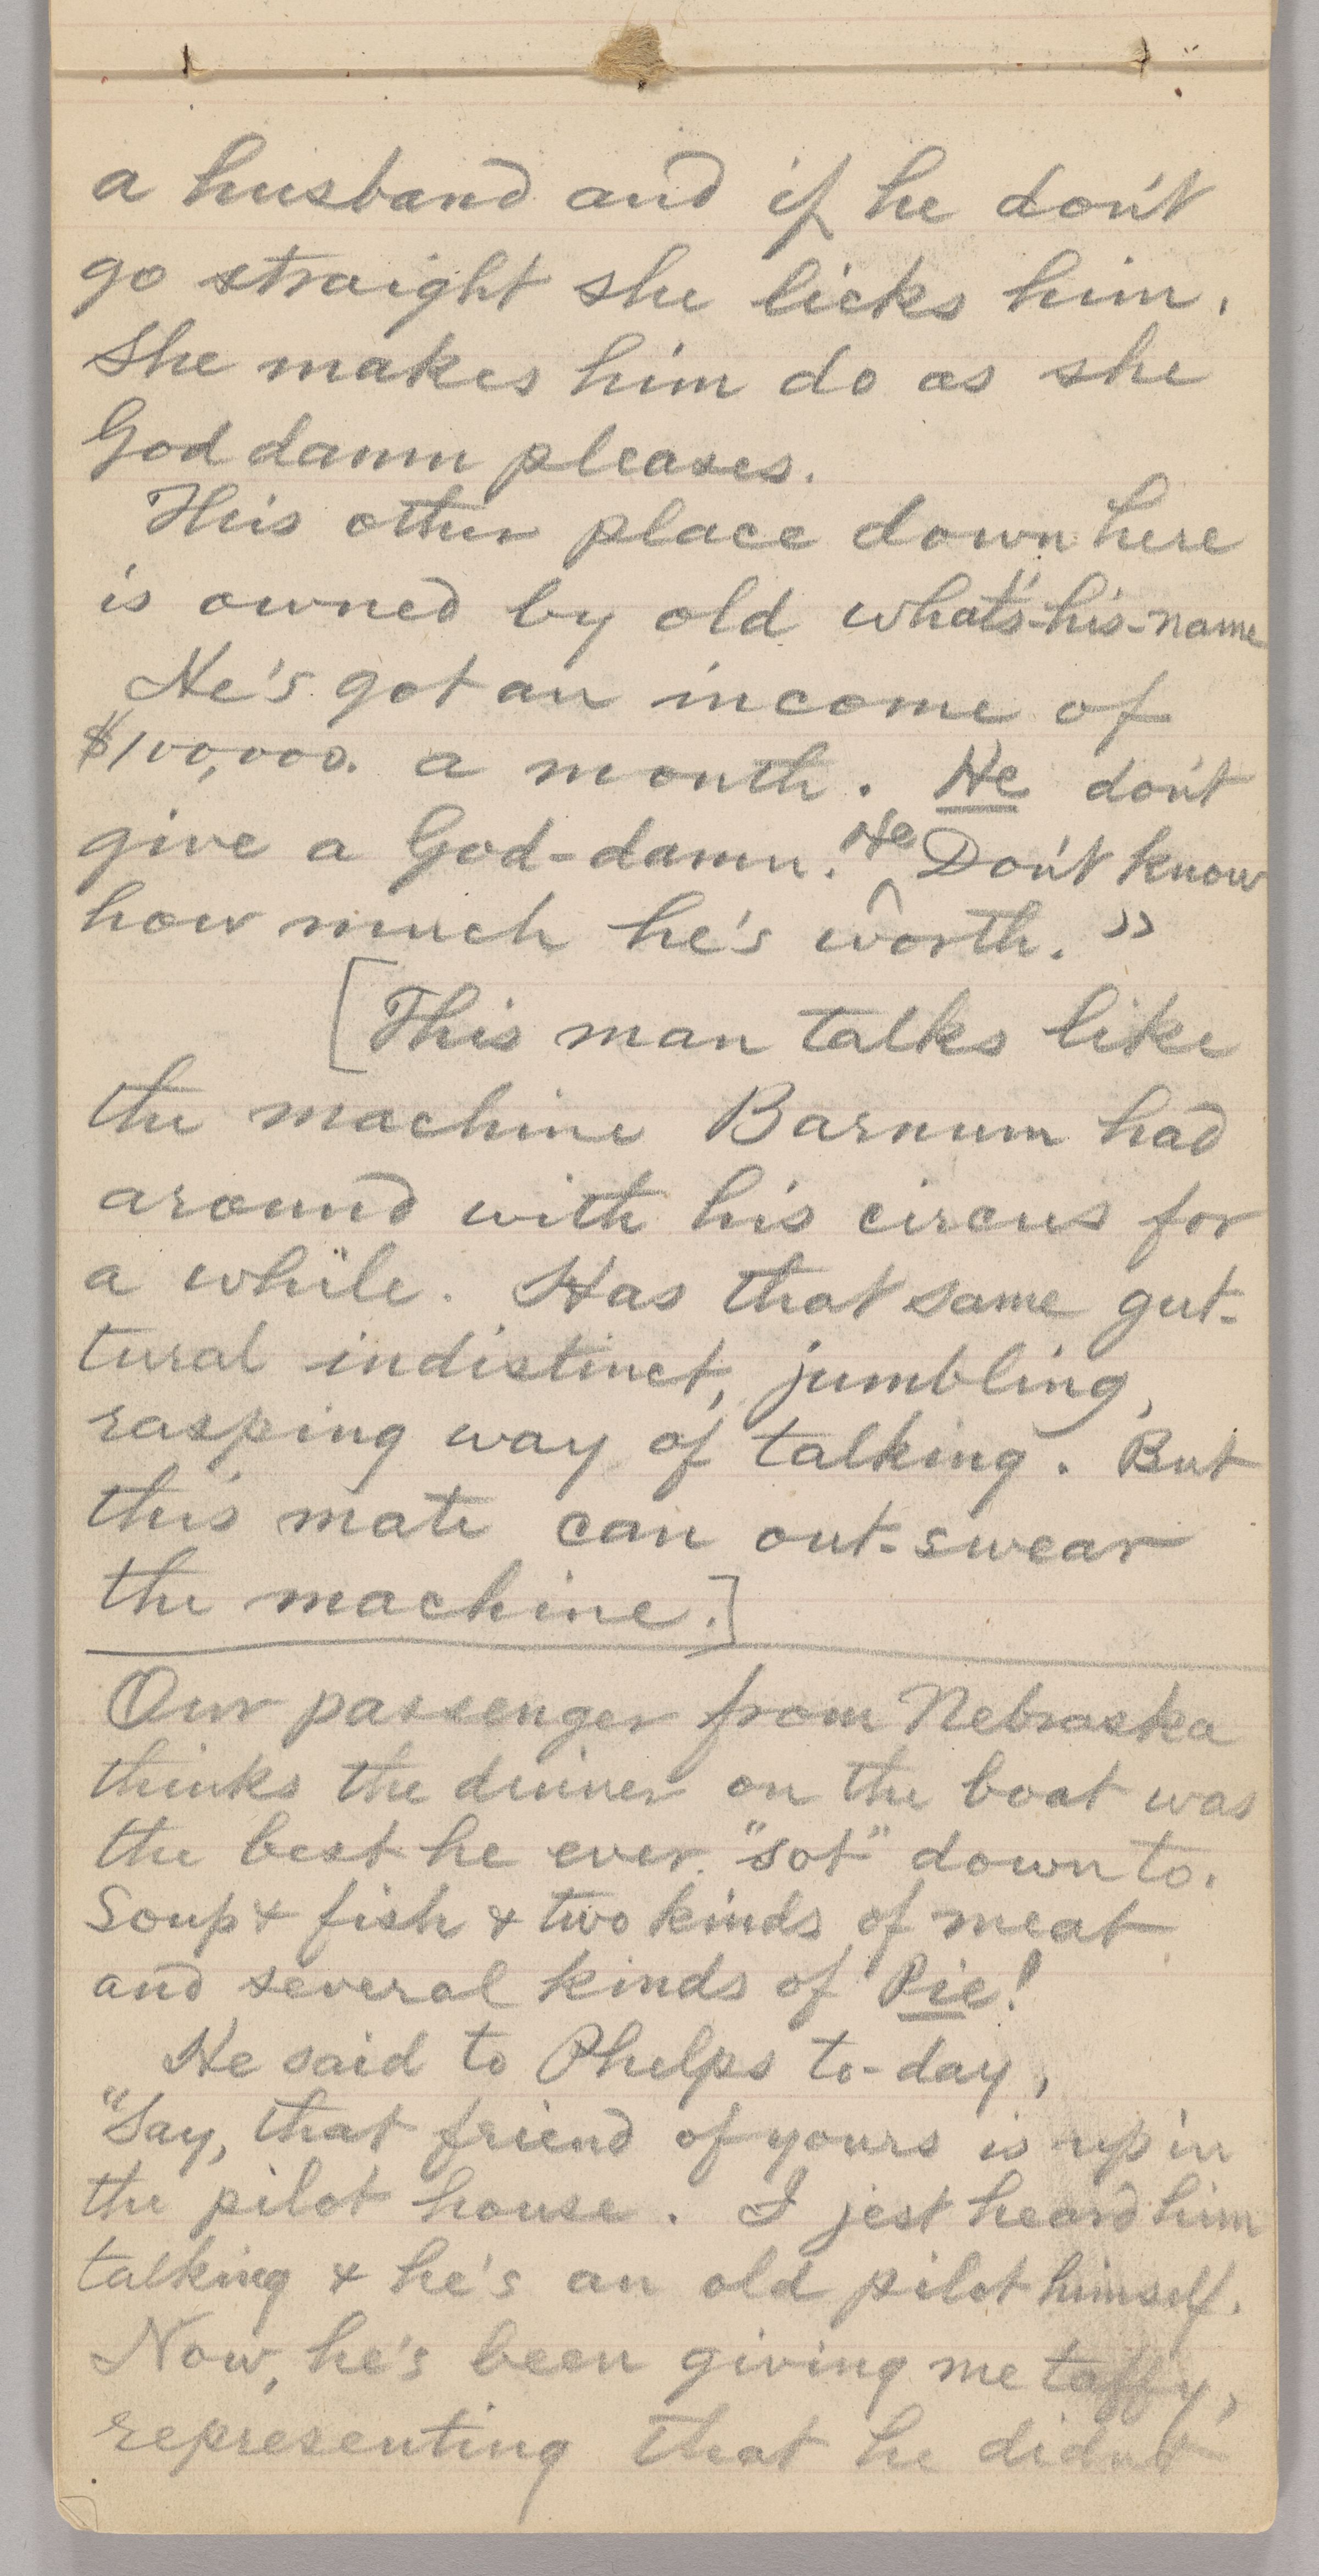 a husband and if he don't
go straight she licks him.
She makes him do as she
God damn pleases.
This other place down here
is owned by old what's-his-name
He's got an income of
$100,000. a month. He don't
give a God-damn. He Don't know
how much he's worth. "
[This man talks like
the machine Barnum had
around with his circus for
a while. Has that same gut-
tural indistinct, jumbling,
rasping way of talking. But
this mate can out-swear
the machine.]
Our passenger from Nebraska
thinks the dinner on the boat was
the best he ever "sot" down to.
Soup & fish & two kinds of meat
and several kinds of Pie!
He said to Phelps to-day,
"Say, that friend of yours is up in
the pilot house. I jest heard him
talking & he's an old pilot himself.
Now, he's been giving me taffy,
representing that he didn't